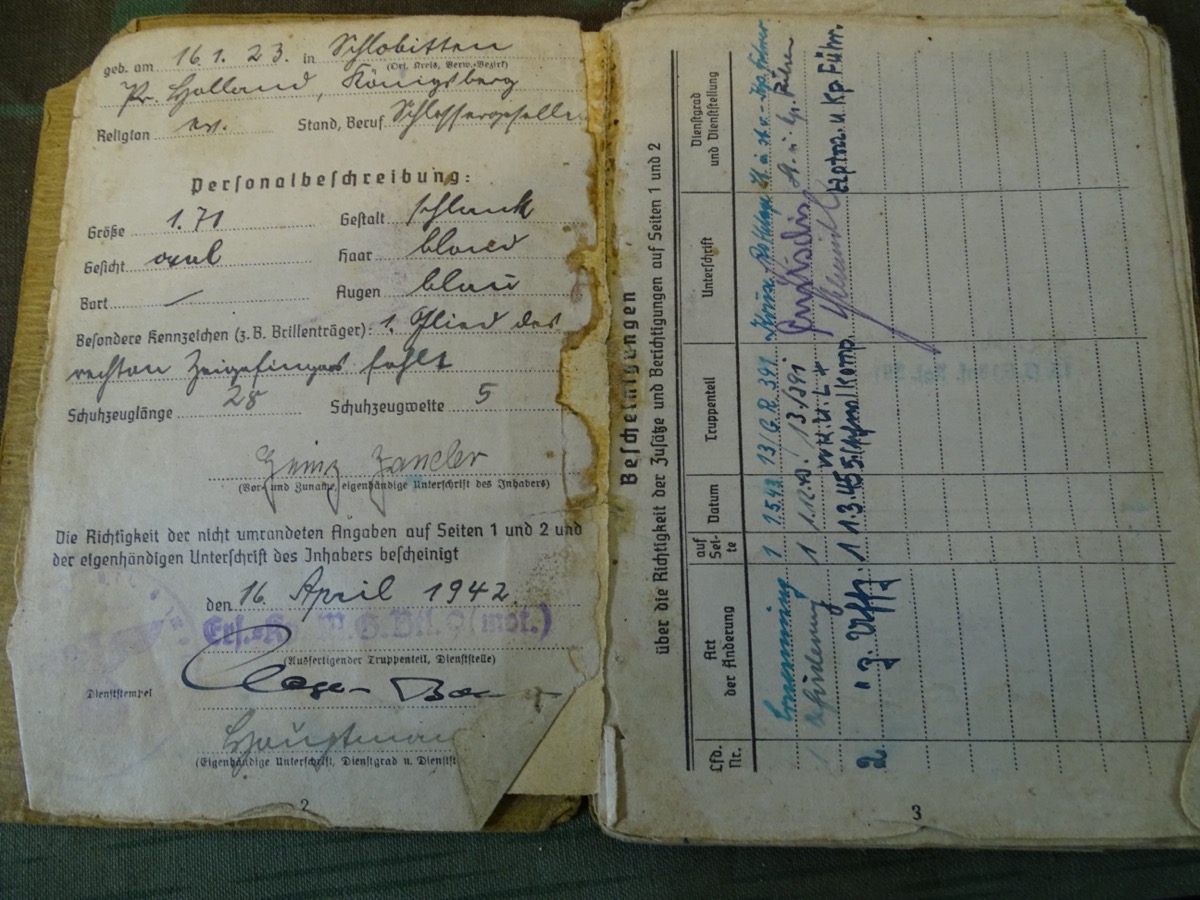 geb. am 16. 1. 23. in Schlobitten
(Ort, Kreis, Verw.-Bezirk)
Pr. Holland, Königsberg
Religion ev. Stand, Beruf Schlossergeselle
Personalbeschreibung:
Größe 1.71 Gestalt schlank
Gesicht oval Haar blond
Bart — Augen blau
Besondere Kennzeichen (z.B. Brillenträger): 1 Glied des
rechten Zeigefingers fehlt
Schuhzeuglänge 28 Schuhzeugweite 5
Heinz
(Vor- und Zuname, eigenhändige Unterschrift des Inhabers)
Die Richtigkeit der nicht umrandeten Angaben auf Seiten 1 und 2 und
der eigenhändigen Unterschrift des Inhabers bescheinigt
den 16. April 1942.
(mot.)
(Ausfertigender Truppenteil, Dienststelle)
Dienststempel
Hauptmann
(Eigenhändige Unterschrift, Dienstgrad u. Dienstst
2
Bescheinigungen
über die Richtigkeit der Zusätze und Berichtigungen auf Seiten 1 und 2
Lfd. Nr. Art der Änderung auf Seite Datum Truppenteil Unterschrift Dienstgrad und Dienststellung
Ernennung 1 1.5.43 13/G.R. 391
Beförderung 1 13./391
2. " z. Uffz. 1 1.3.45 Hptm. u. Kp. Führ.
3